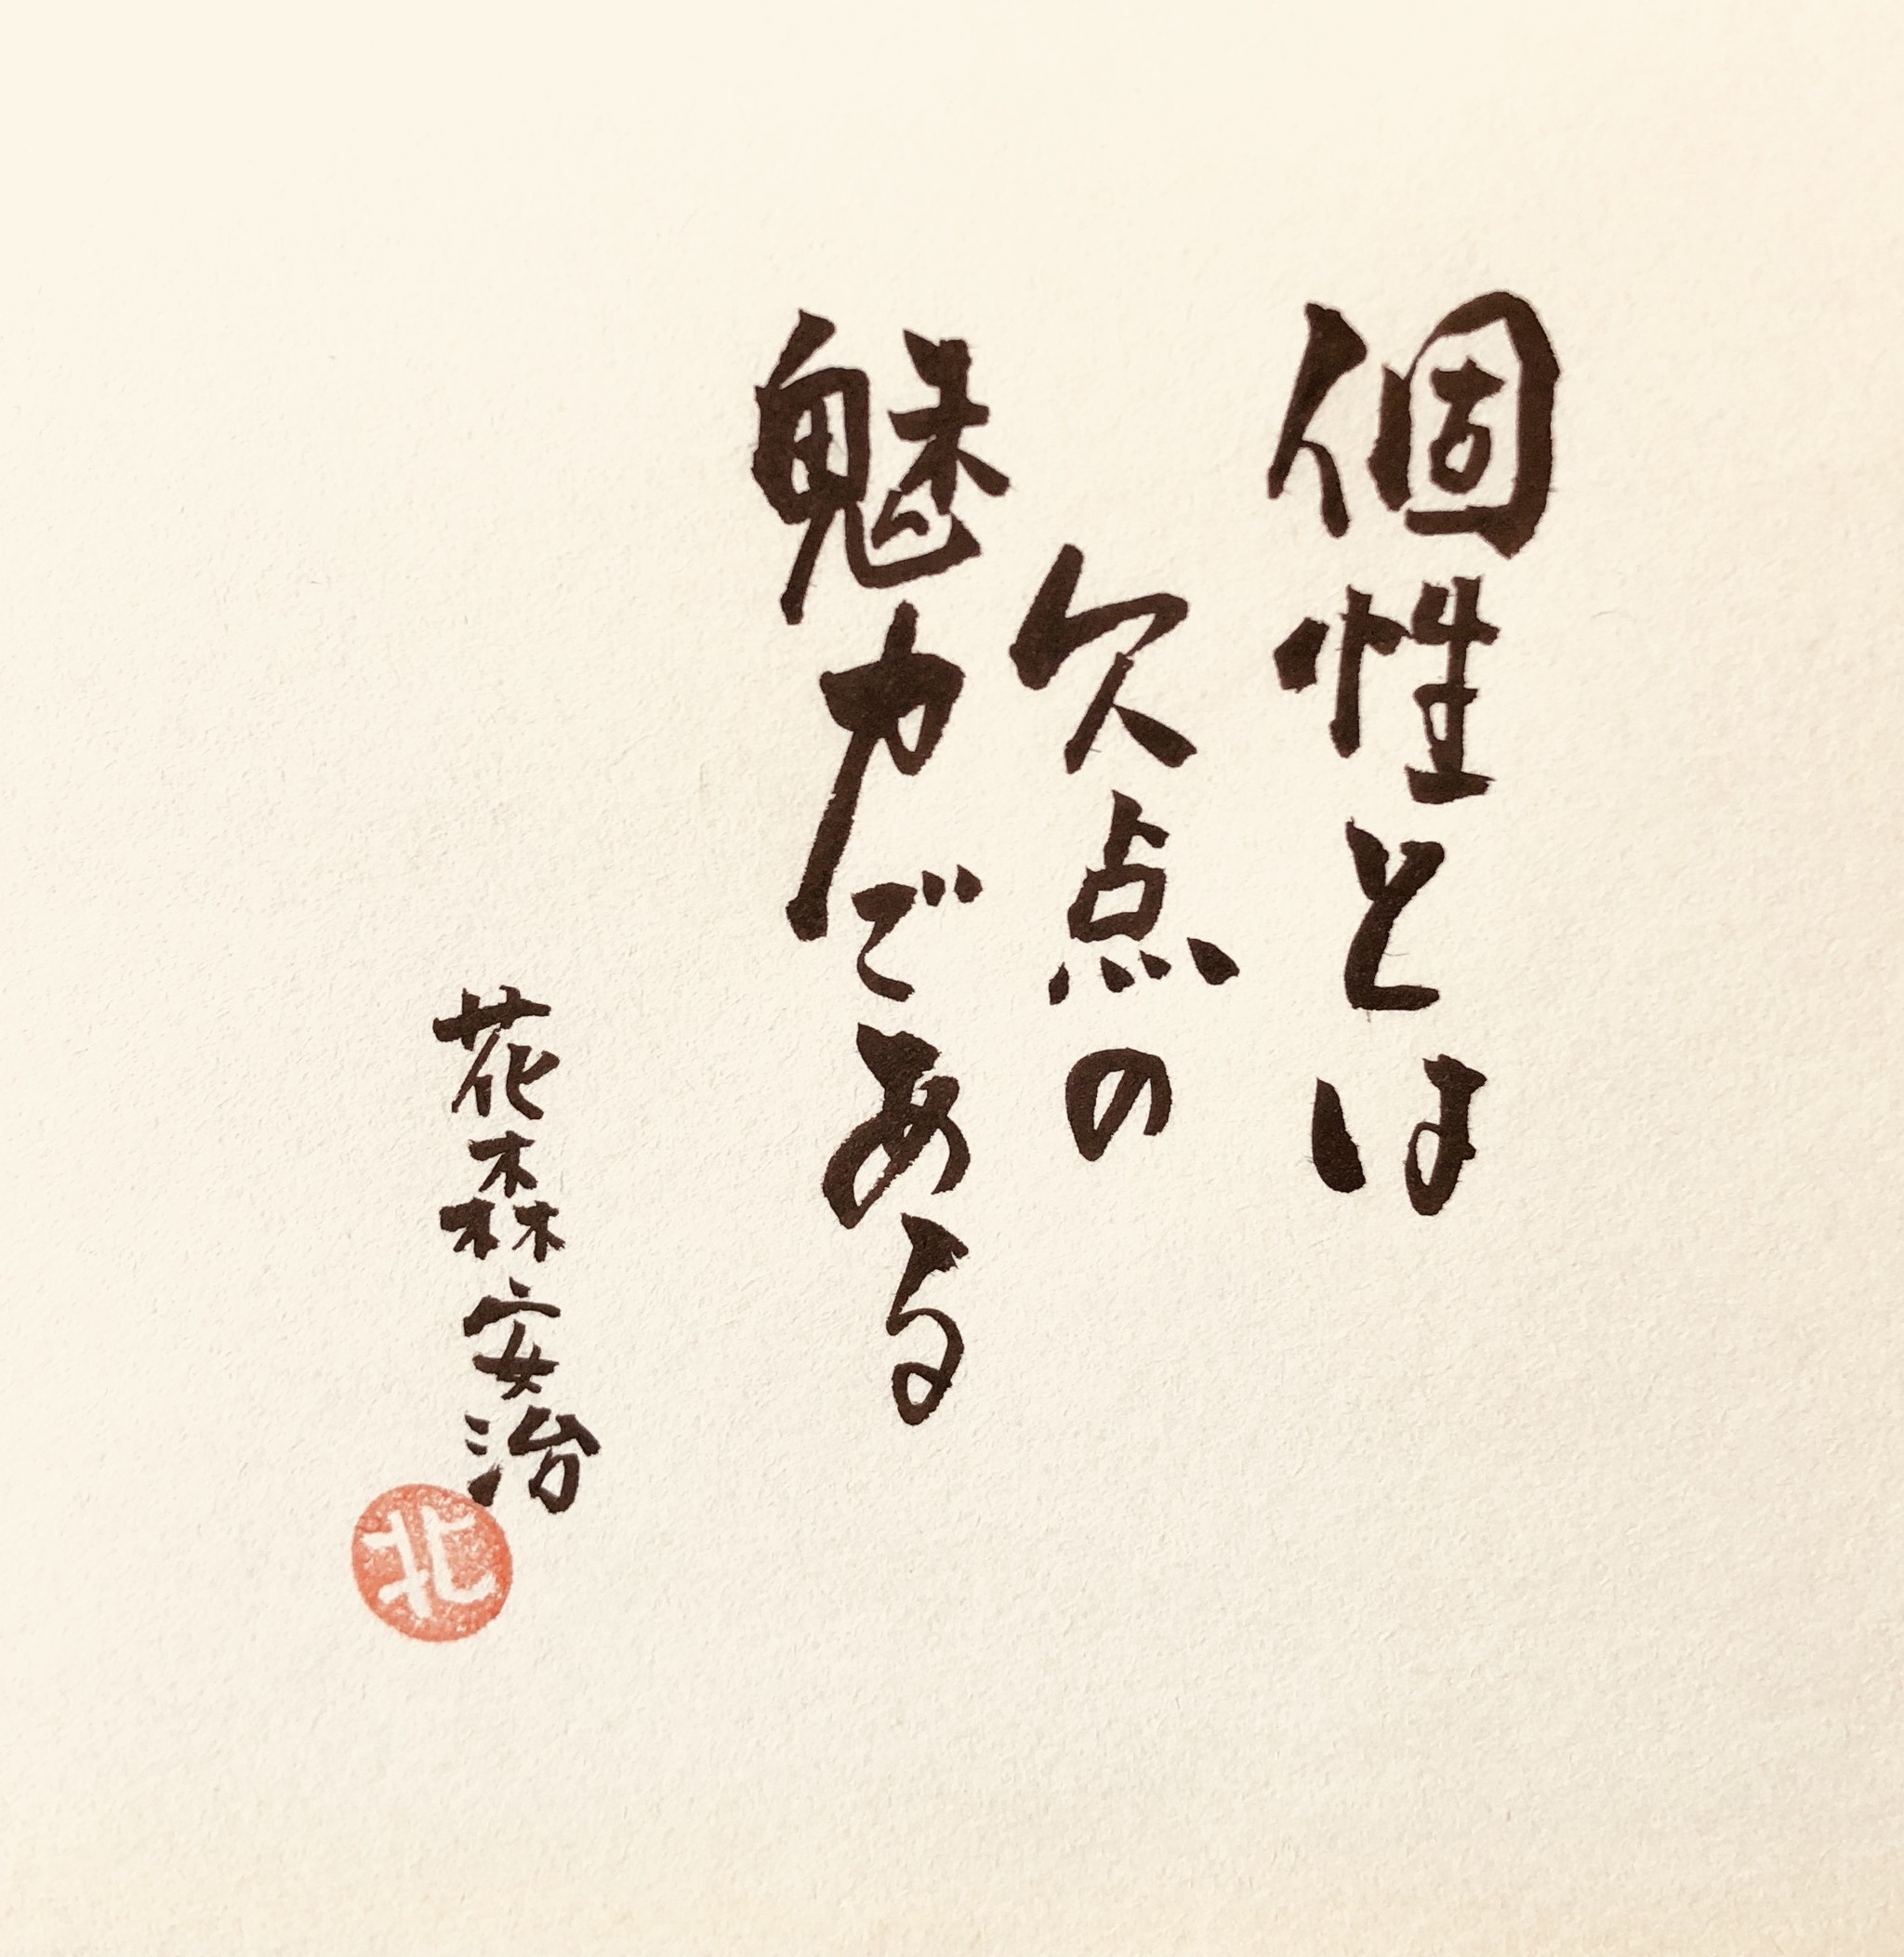 個性とは
欠点の
魅力である
花森安治
北